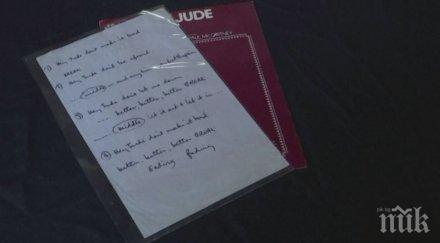 JUDE
McCARTNEY
① Hey Jude don't make it bad
BREAK
② Hey Jude don't be afraid
middle
③ Hey Jude don't let me down
better, better, better BREAK
middle let it out & let it in
④ Hey Jude don't make it bad
better, better, better BREAK
Ending fading
pik.bg
пик